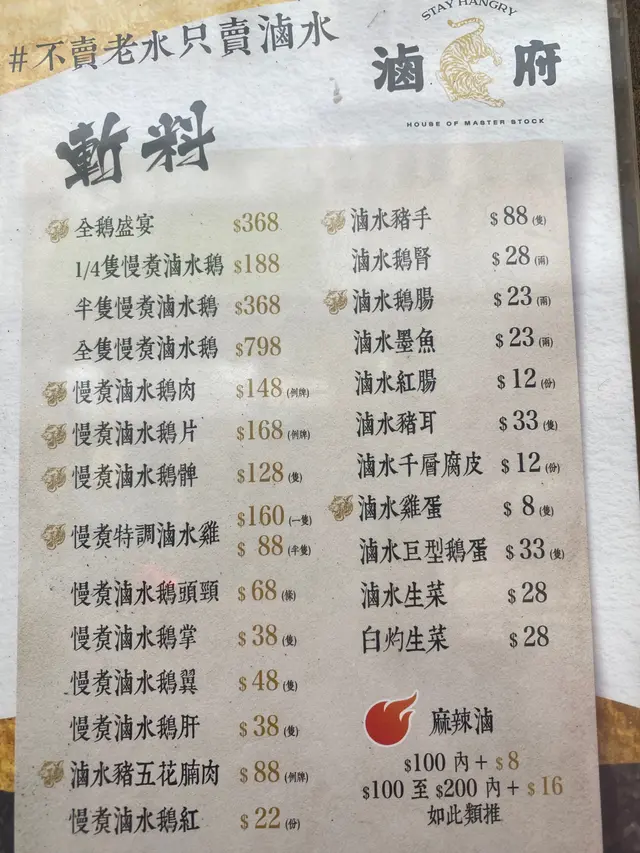 #不賣老水只賣滷水
STAY HANGRY
滷府
HOUSE OF MASTER STOCK
斬料
全鵝盛宴 $368
1/4隻慢煮滷水鵝 $188
半隻慢煮滷水鵝 $368
全隻慢煮滷水鵝 $798
慢煮滷水鵝肉 $148 (例牌)
慢煮滷水鵝片 $168 (例牌)
慢煮滷水鵝髀 $128 (隻)
慢煮特調滷水雞 $160 (一隻)
$ 88 (半隻)
慢煮滷水鵝頭頸 $ 68 (條)
慢煮滷水鵝掌 $ 38 (隻)
慢煮滷水鵝翼 $ 48 (隻)
慢煮滷水鵝肝 $ 38 (隻)
滷水豬五花腩肉 $ 88 (例牌)
慢煮滷水鵝紅 $ 22 (份)
滷水豬手 $ 88 (隻)
滷水鵝腎 $ 28 (兩)
滷水鵝腸 $ 23 (兩)
滷水墨魚 $ 23 (兩)
滷水紅腸 $ 12 (份)
滷水豬耳 $ 33 (隻)
滷水千層腐皮 $ 12 (份)
滷水雞蛋 $ 8 (隻)
滷水巨型鵝蛋 $ 33 (隻)
滷水生菜 $ 28
白灼生菜 $ 28
麻辣滷
$100 內 + $ 8
$100 至 $200 內 + $ 16
如此類推